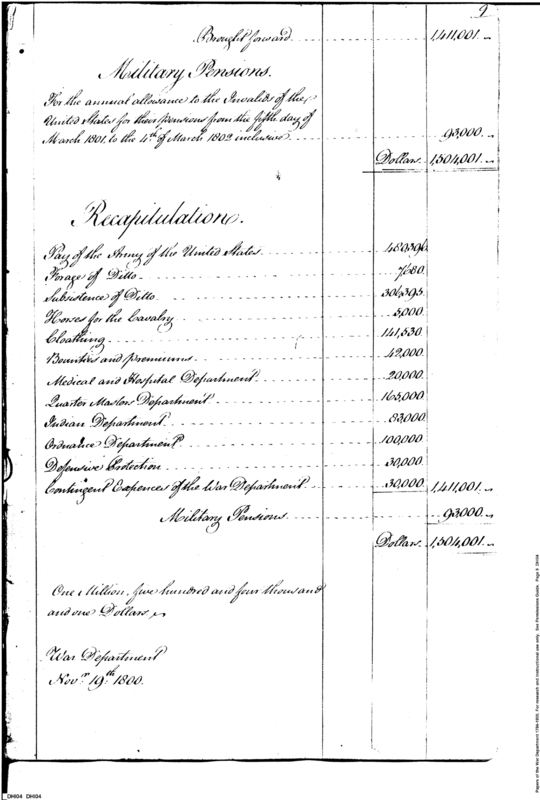 9
Brought forward 1,411,001.
Military Pensions.
For the annual allowance to the Invalids of the
United States for their pensions from the fifth day of
March 1801, to the 4th of March 1802 inclusive 93,000.
Dollars. 1,504,001.
Recapitulation.
Pay of the Army of the United States 480,396
Forage of Ditto 7680.
Subsistence of Ditto 306,395
Horses for the Cavalry 5,000.
Cloathing 141,530.
Bounties and premiums 42,000.
Medical and Hospital Department 20,000.
Quarter Masters Department 165,000
Indian Department 83,000.
Ordnance Department 100,000
Defensive Protection 30,000.
Contingent Expences of the War Department 30,000. 1,411,001.
Military Pensions 93,000.
Dollars. 1,504,001.
One Million, five hundred and four thousand
and one Dollars
War Department
Novr. 19th 1800.
DHI04 DHI04
Papers of the War Department 1784-1800. For research and instructional use only. See Permissions Guide. Page 9 DHI04